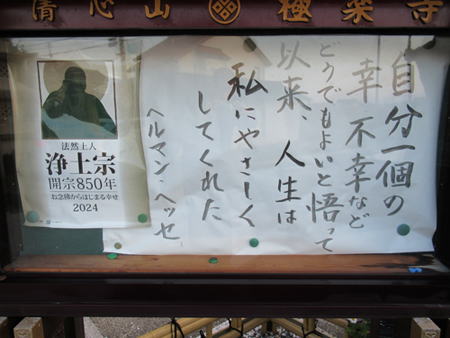 清心山 極楽寺
自分一個の
幸不幸など
どうでもよいと悟って
以来、人生は
私にやさしく
してくれた
ヘルマン・ヘッセ
法然上人
浄土宗
開宗850年
お念佛からはじまる幸せ
2024